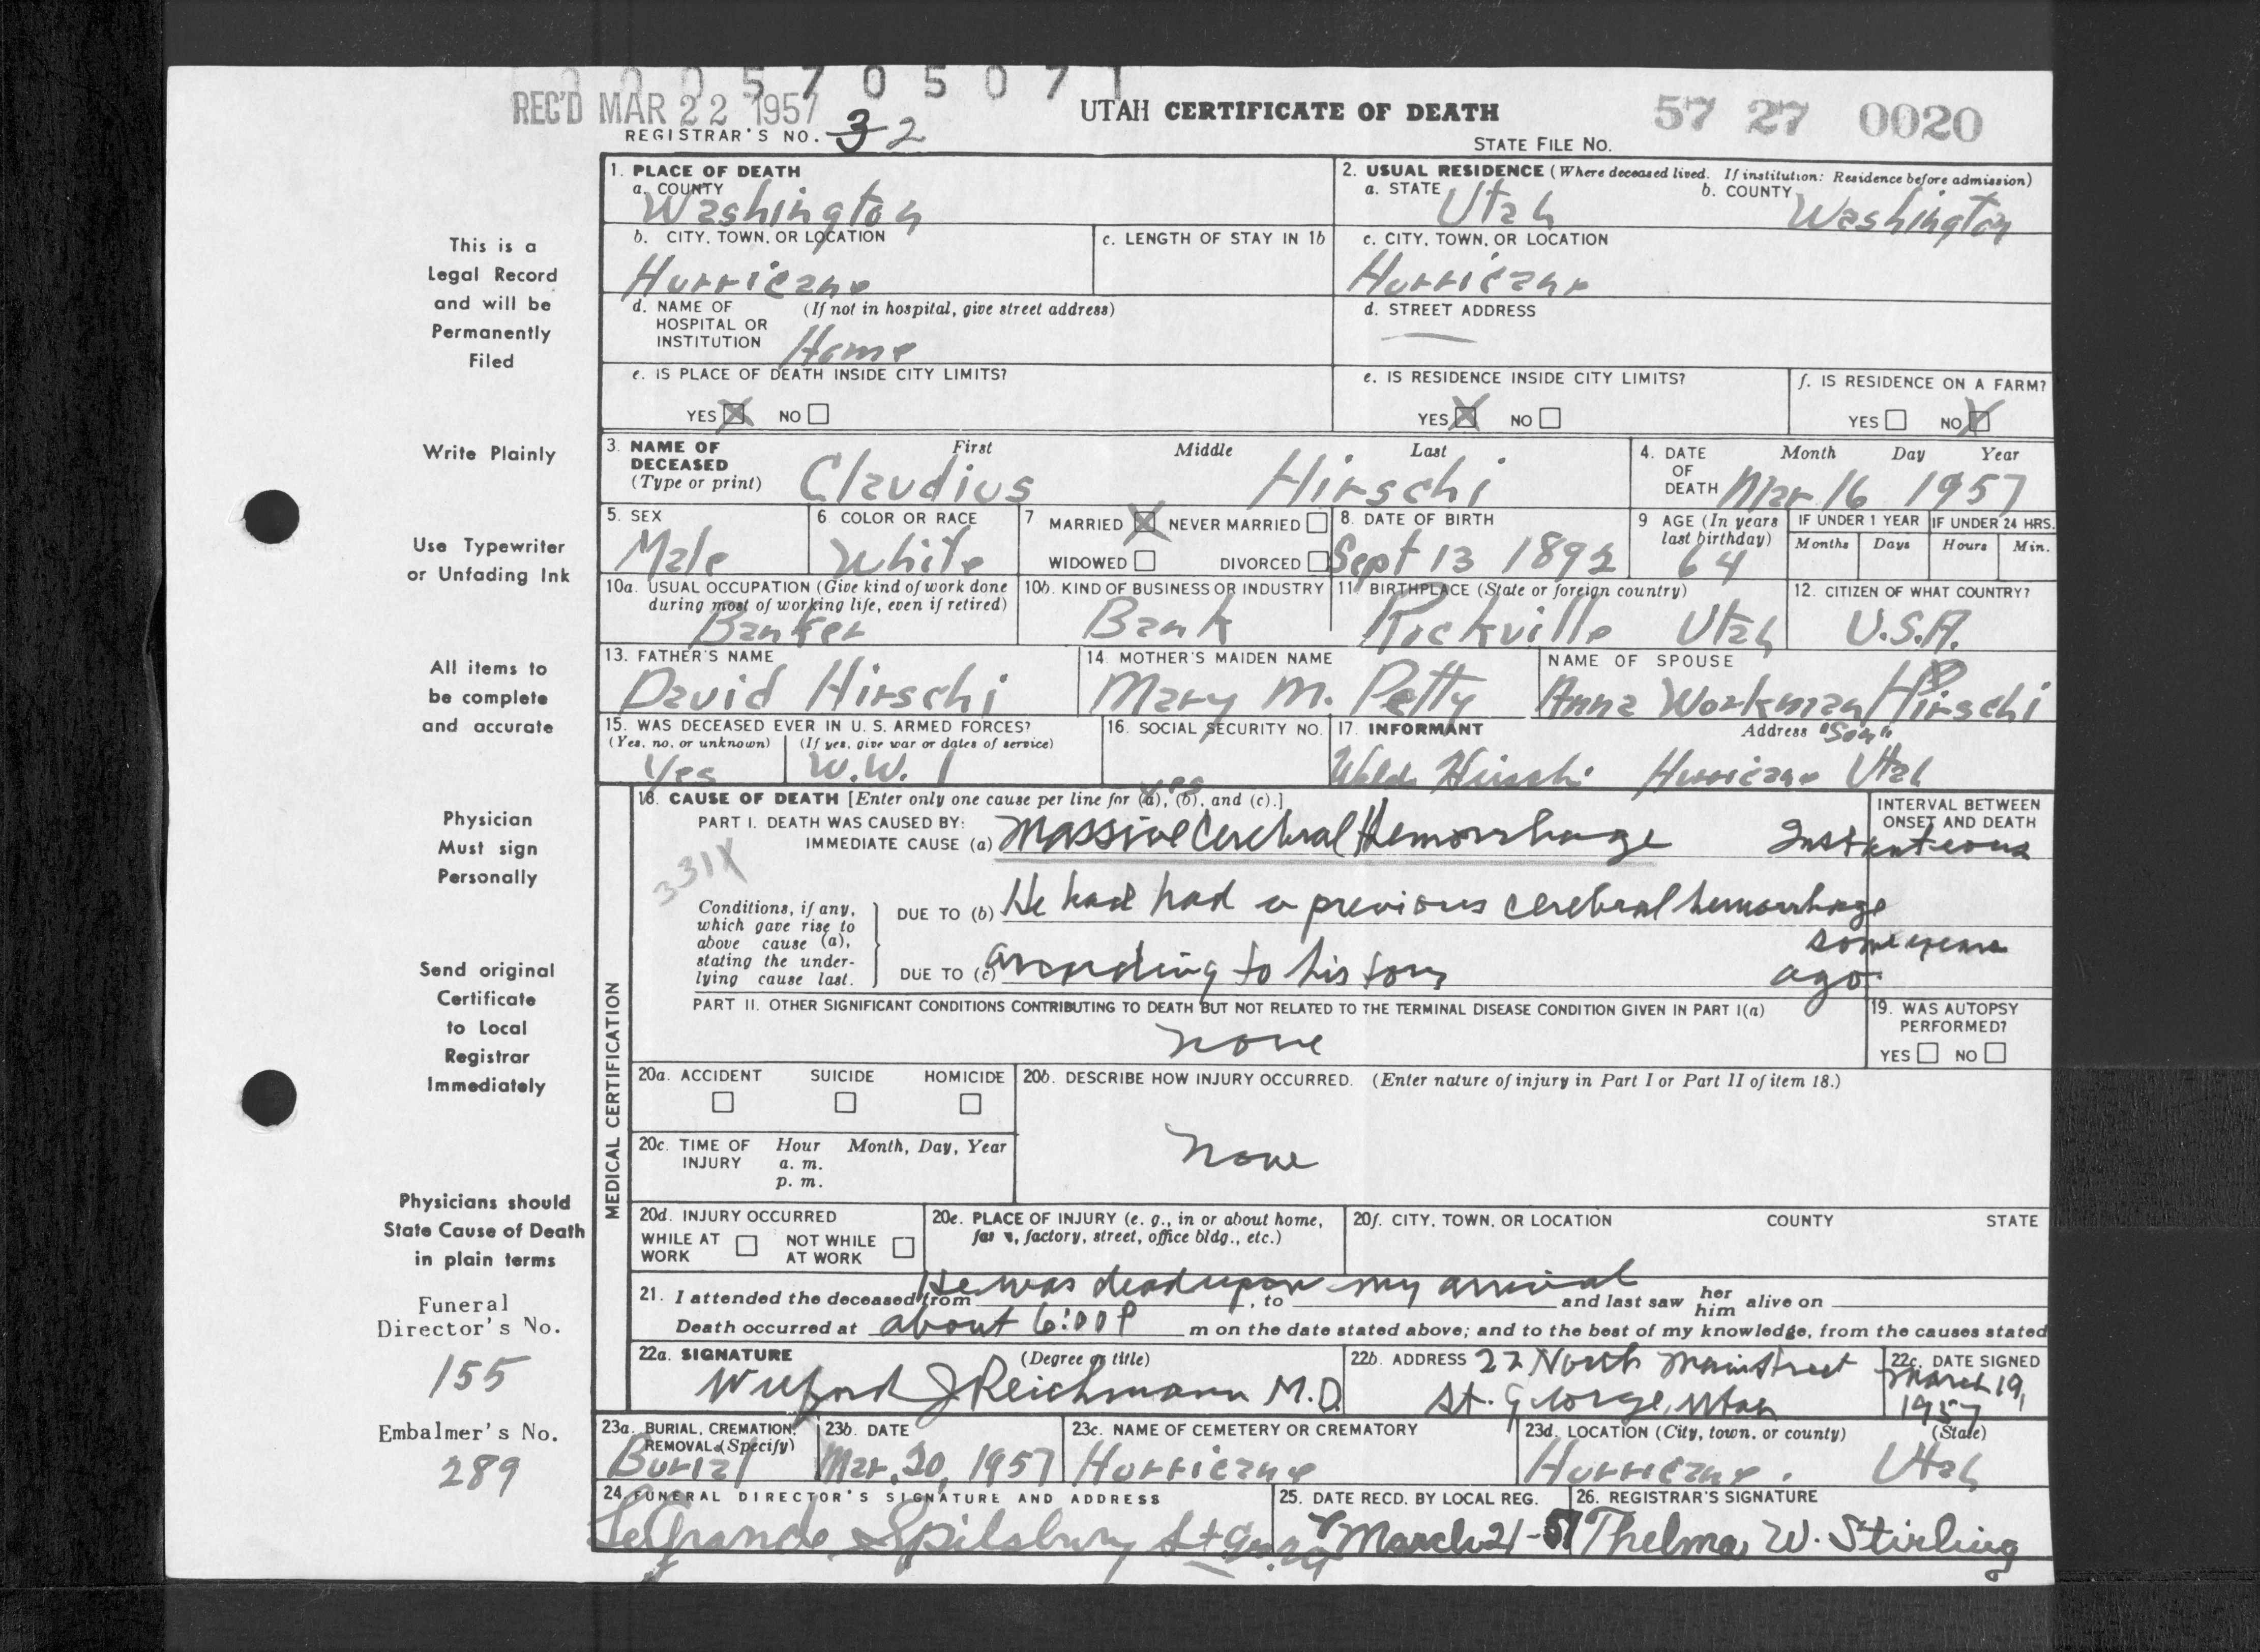 0 0 0 5 7 0 5 0 7 1
REC'D MAR 22 1957
UTAH CERTIFICATE OF DEATH
57 27 0020
REGISTRAR'S NO. 32
STATE FILE NO.
This is a
Legal Record
and will be
Permanently
Filed
1. PLACE OF DEATH
a. COUNTY
Washington
2. USUAL RESIDENCE (Where deceased lived. If institution: Residence before admission)
a. STATE Utah b. COUNTY Washington
b. CITY, TOWN, OR LOCATION
Hurricane
c. LENGTH OF STAY IN 1b
c. CITY, TOWN, OR LOCATION
Hurricane
d. NAME OF (If not in hospital, give street address)
HOSPITAL OR
INSTITUTION Home
d. STREET ADDRESS
—
e. IS PLACE OF DEATH INSIDE CITY LIMITS?
YES X NO
e. IS RESIDENCE INSIDE CITY LIMITS?
YES X NO
f. IS RESIDENCE ON A FARM?
YES NO X
Write Plainly
3. NAME OF First Middle Last
DECEASED
(Type or print) Claudius Hirschi
4. DATE Month Day Year
OF
DEATH Mar 16 1957
Use Typewriter
or Unfading Ink
5. SEX
Male
6. COLOR OR RACE
White
7 MARRIED X NEVER MARRIED
WIDOWED DIVORCED
8. DATE OF BIRTH
Sept 13 1892
9 AGE (In years
last birthday)
64
IF UNDER 1 YEAR IF UNDER 24 HRS.
Months Days Hours Min.
10a. USUAL OCCUPATION (Give kind of work done
during most of working life, even if retired)
Banker
10b. KIND OF BUSINESS OR INDUSTRY
Bank
11 BIRTHPLACE (State or foreign country)
Rockville Utah
12. CITIZEN OF WHAT COUNTRY?
U.S.A.
All items to
be complete
and accurate
13. FATHER'S NAME
David Hirschi
14. MOTHER'S MAIDEN NAME
Mary M. Petty
NAME OF SPOUSE
Anna Workman Hirschi
15. WAS DECEASED EVER IN U. S. ARMED FORCES?
(Yes, no, or unknown) (If yes, give war or dates of service)
Yes W.W. 1
16. SOCIAL SECURITY NO.
yes
17. INFORMANT Address "Son"
Waldo Hirschi Hurricane Utah
Physician
Must sign
Personally
MEDICAL CERTIFICATION
18. CAUSE OF DEATH [Enter only one cause per line for (a), (b), and (c).]
INTERVAL BETWEEN
ONSET AND DEATH
PART I. DEATH WAS CAUSED BY:
IMMEDIATE CAUSE (a) Massive Cerebral Hemorrhage Instanteous
331X
Conditions, if any,
which gave rise to
above cause (a),
stating the under-
lying cause last.
DUE TO (b) He had had a previous cerebral hemorrhage
some years
DUE TO (c) according to history ago.
Send original
Certificate
to Local
Registrar
Immediately
PART II. OTHER SIGNIFICANT CONDITIONS CONTRIBUTING TO DEATH BUT NOT RELATED TO THE TERMINAL DISEASE CONDITION GIVEN IN PART I(a)
none
19. WAS AUTOPSY
PERFORMED?
YES NO
20a. ACCIDENT SUICIDE HOMICIDE
20b. DESCRIBE HOW INJURY OCCURRED. (Enter nature of injury in Part I or Part II of item 18.)
none
20c. TIME OF Hour Month, Day, Year
INJURY a. m.
p. m.
Physicians should
State Cause of Death
in plain terms
20d. INJURY OCCURRED
WHILE AT NOT WHILE
WORK AT WORK
20e. PLACE OF INJURY (e. g., in or about home,
farm, factory, street, office bldg., etc.)
20f. CITY, TOWN, OR LOCATION COUNTY STATE
He was dead upon my arrival
21. I attended the deceased from , to and last saw her him alive on
Death occurred at about 6:00 P m on the date stated above; and to the best of my knowledge, from the causes stated
Funeral
Director's No.
155
22a. SIGNATURE (Degree or title)
Wilford J Reichmann M.D.
22b. ADDRESS 22 North Main Street
St. George, Utah
22c. DATE SIGNED
March 19,
1957
Embalmer's No.
289
23a. BURIAL, CREMATION,
REMOVAL (Specify)
Burial
23b. DATE
Mar. 20, 1957
23c. NAME OF CEMETERY OR CREMATORY
Hurricane
23d. LOCATION (City, town, or county) (State)
Hurricane. Utah
24. FUNERAL DIRECTOR'S SIGNATURE AND ADDRESS
LeGrande Spilsbury St George
25. DATE RECD. BY LOCAL REG.
March 21-57
26. REGISTRAR'S SIGNATURE
Thelma W. Stirling